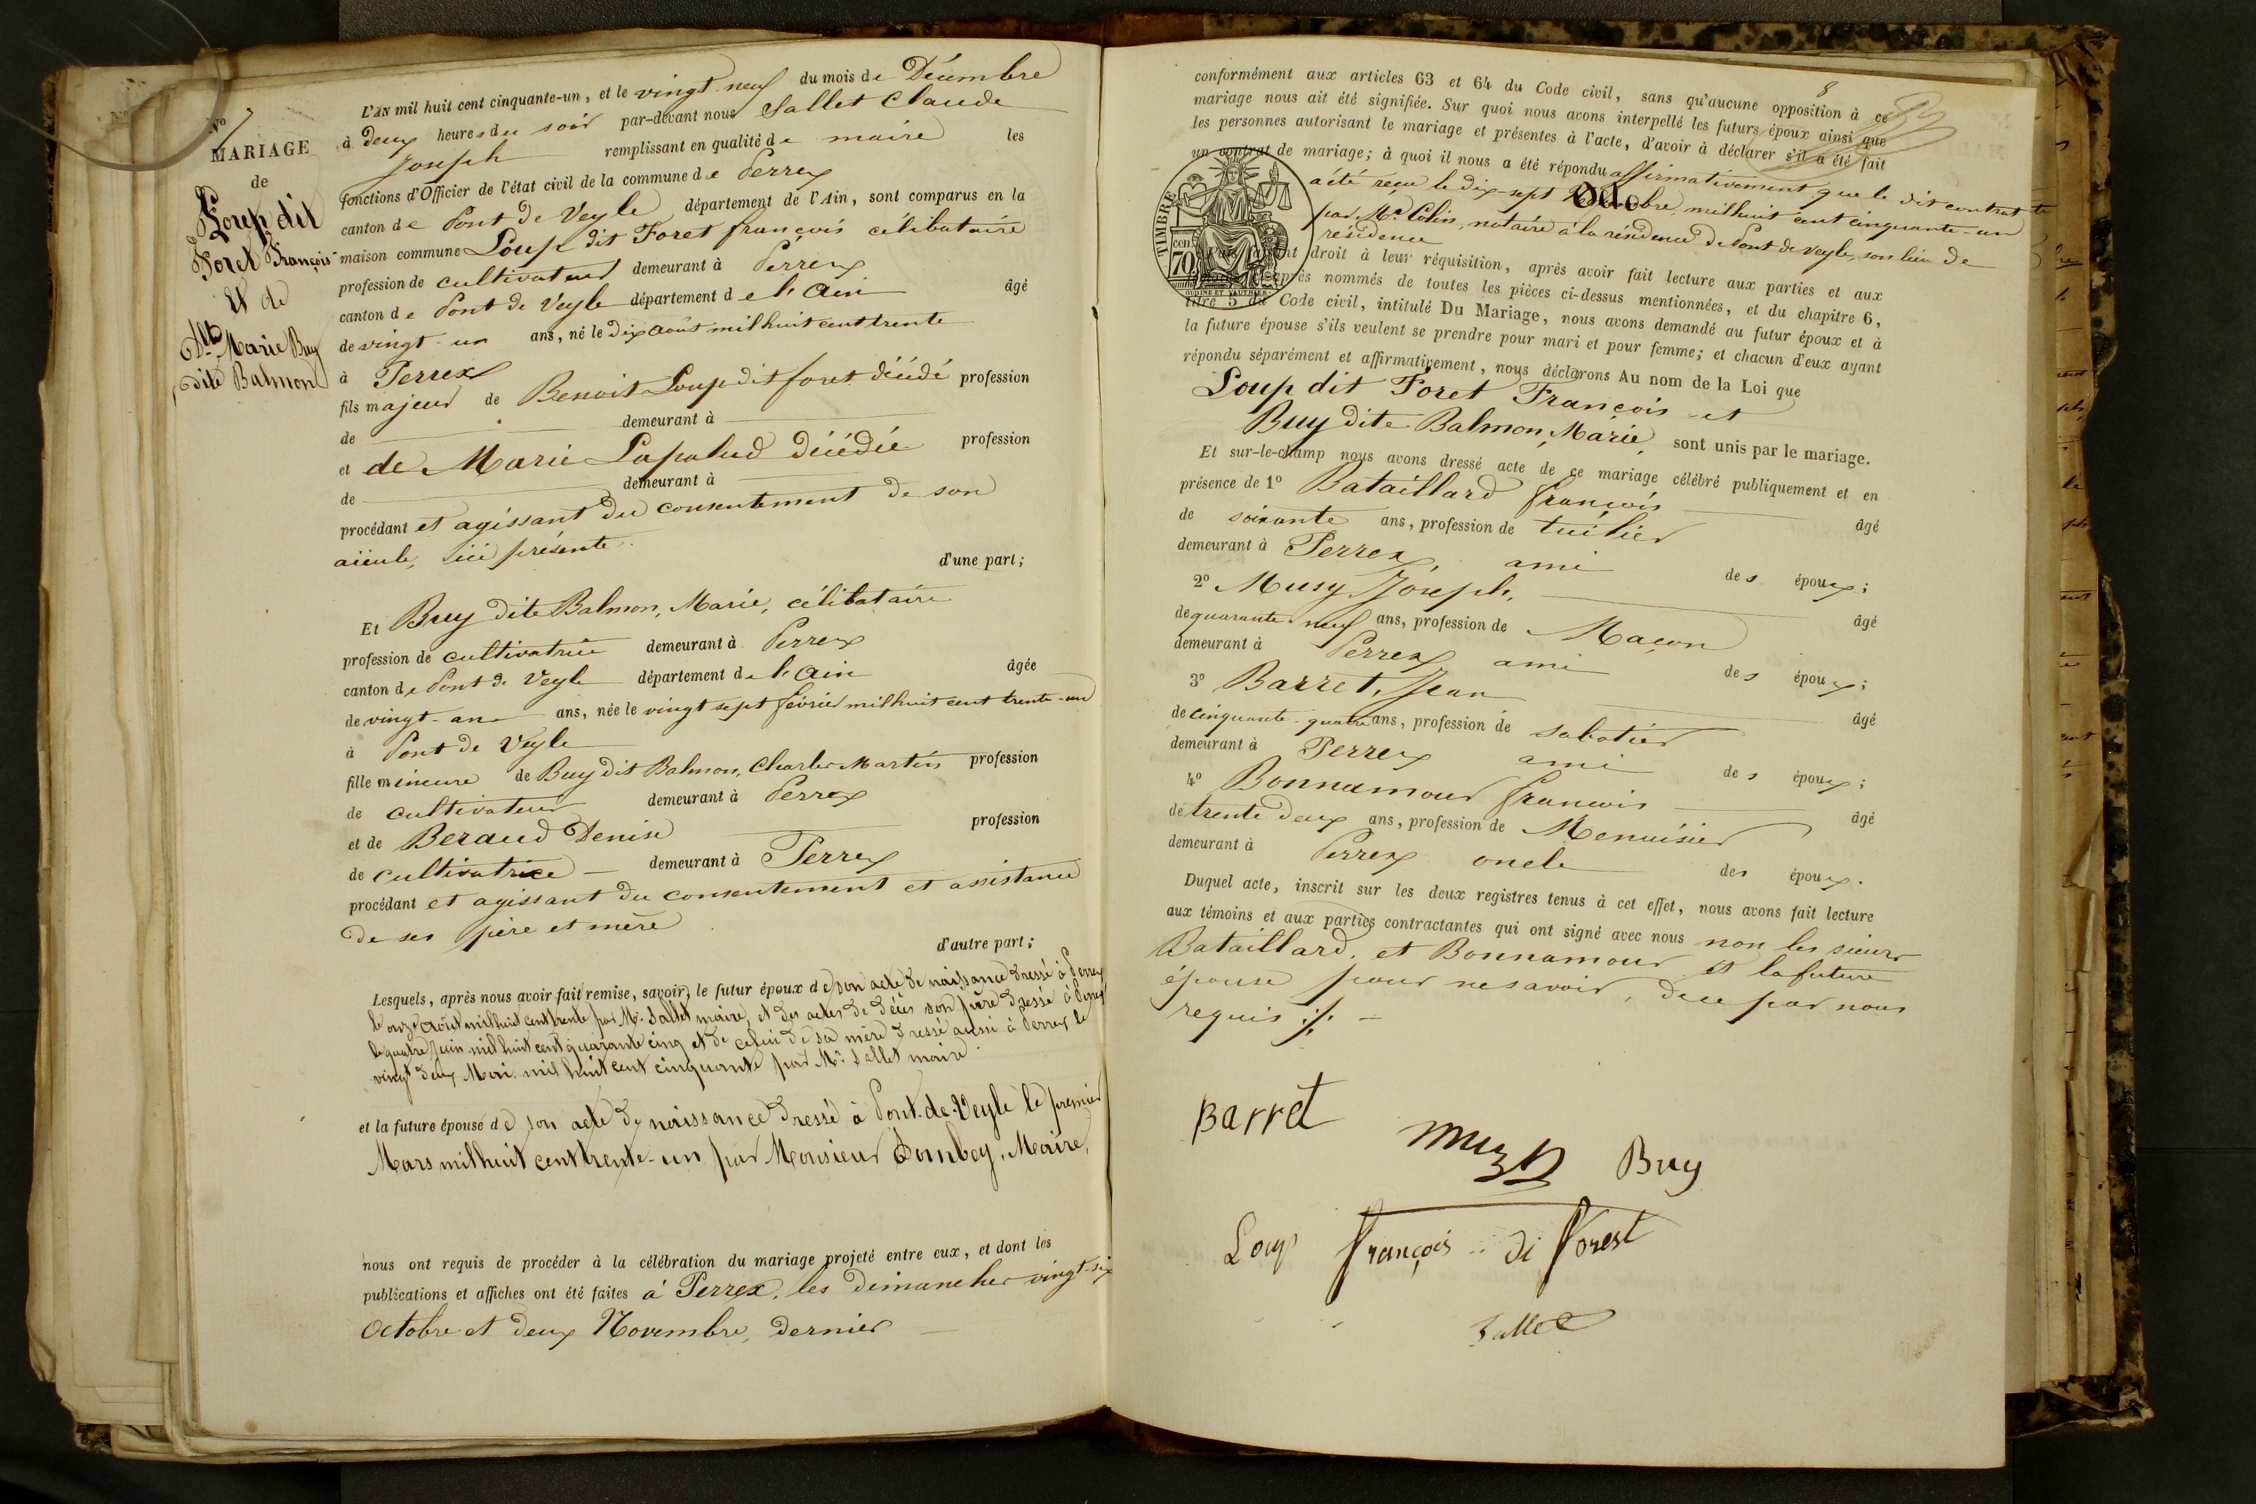 N° 7
MARIAGE
de
Loup dit
Foret François
Et de
Dlle Marie Buy
dite Balmon
L'AN mil huit cent cinquante-un, et le vingt-neuf du mois de Décembre
à deux heures du soir par-devant nous Sallet Claude
Joseph remplissant en qualité de maire les
fonctions d'Officier de l'état civil de la commune de Perrex
canton de Pont de Veyle département de l'Ain, sont comparus en la
maison commune Loup dit Foret françois célibataire
profession de cultivateur demeurant à Perrex
canton de Pont de Veyle département de l'Ain âgé
de vingt-un ans, né le dix Août mil huit cent trente
à Perrex
fils majeur de Benoit Loup dit foret décédé profession
de demeurant à
et de Marie Lapalud décédée profession
de demeurant à
procédant et agissant du consentement de son
aïeule, ici présente.
d'une part;
Et Buy dite Balmon, Marie, célibataire
profession de cultivatrice demeurant à Perrex
canton de Pont de Veyle département de l'Ain âgée
de vingt-ans ans, née le vingt sept février mil huit cent trente-un
à Pont de Veyle
fille mineure de Buy dit Balmon, Charles Martin profession
de cultivateur demeurant à Perrex
et de Beraud Denise profession
de cultivatrice demeurant à Perrex
procédant et agissant du consentement et assistance
de ses père et mère
d'autre part;
Lesquels, après nous avoir fait remise, savoir, le futur époux de son acte de naissance dressé à Perrex
le onze Août mil huit cent trente par Mr. Sallet maire, et des actes de décès son père dressé à Perrex
le quatre juin mil huit cent quarante cinq et de celui de sa mère dressé aussi à Perrex le
vingt deux Mai mil huit cent cinquante par Mr. Sallet maire.
et la future épouse de son acte de naissance dressé à Pont-de-Veyle le premier
Mars mil huit cent trente-un par Monsieur Dombey, Maire,
nous ont requis de procéder à la célébration du mariage projeté entre eux, et dont les
publications et affiches ont été faites à Perrex, les dimanches vingt-six
Octobre et deux Novembre, dernier
8
conformément aux articles 63 et 64 du Code civil, sans qu'aucune opposition à ce
mariage nous ait été signifiée. Sur quoi nous avons interpellé les futurs époux ainsi que
les personnes autorisant le mariage et présentes à l'acte, d'avoir à déclarer s'il a été fait
un contrat de mariage; à quoi il nous a été répondu affirmativement que le dit contrat
a été reçu le dix-sept mil huit cent cinquante-un
par Me. Colin, notaire à la résidence de Pont de Veyle, son lieu de
résidence
TIMBRE
cent
70
droit à leur réquisition, après avoir fait lecture aux parties et aux
après nommés de toutes les pièces ci-dessus mentionnées, et du chapitre 6,
titre 5 du Code civil, intitulé Du Mariage, nous avons demandé au futur époux et à
la future épouse s'ils veulent se prendre pour mari et pour femme; et chacun d'eux ayant
répondu séparément et affirmativement, nous déclarons Au nom de la Loi que
Loup dit Foret François et
Buy dite Balmon, Marie, sont unis par le mariage.
Et sur-le-champ nous avons dressé acte de ce mariage célébré publiquement et en
présence de 1° Bataillard françois âgé
de soixante ans, profession de tuilier
demeurant à Perrex, ami des époux;
2° Musy Joseph, âgé
de quarante-neuf ans, profession de Maçon
demeurant à Perrex ami des époux;
3° Barret, Jean âgé
de cinquante-quatre ans, profession de sabotier
demeurant à Perrex ami des époux;
4° Bonnamour françois âgé
de trente deux ans, profession de Menuisier
demeurant à Perrex oncle des époux.
Duquel acte, inscrit sur les deux registres tenus à cet effet, nous avons fait lecture
aux témoins et aux parties contractantes qui ont signé avec nous non les sieurs
Bataillard, et Bonnamour et la future
épouse pour ne savoir, de ce par nous
requis ./.
Barret
muzy
Buy
Loup françois di forest
Sallet